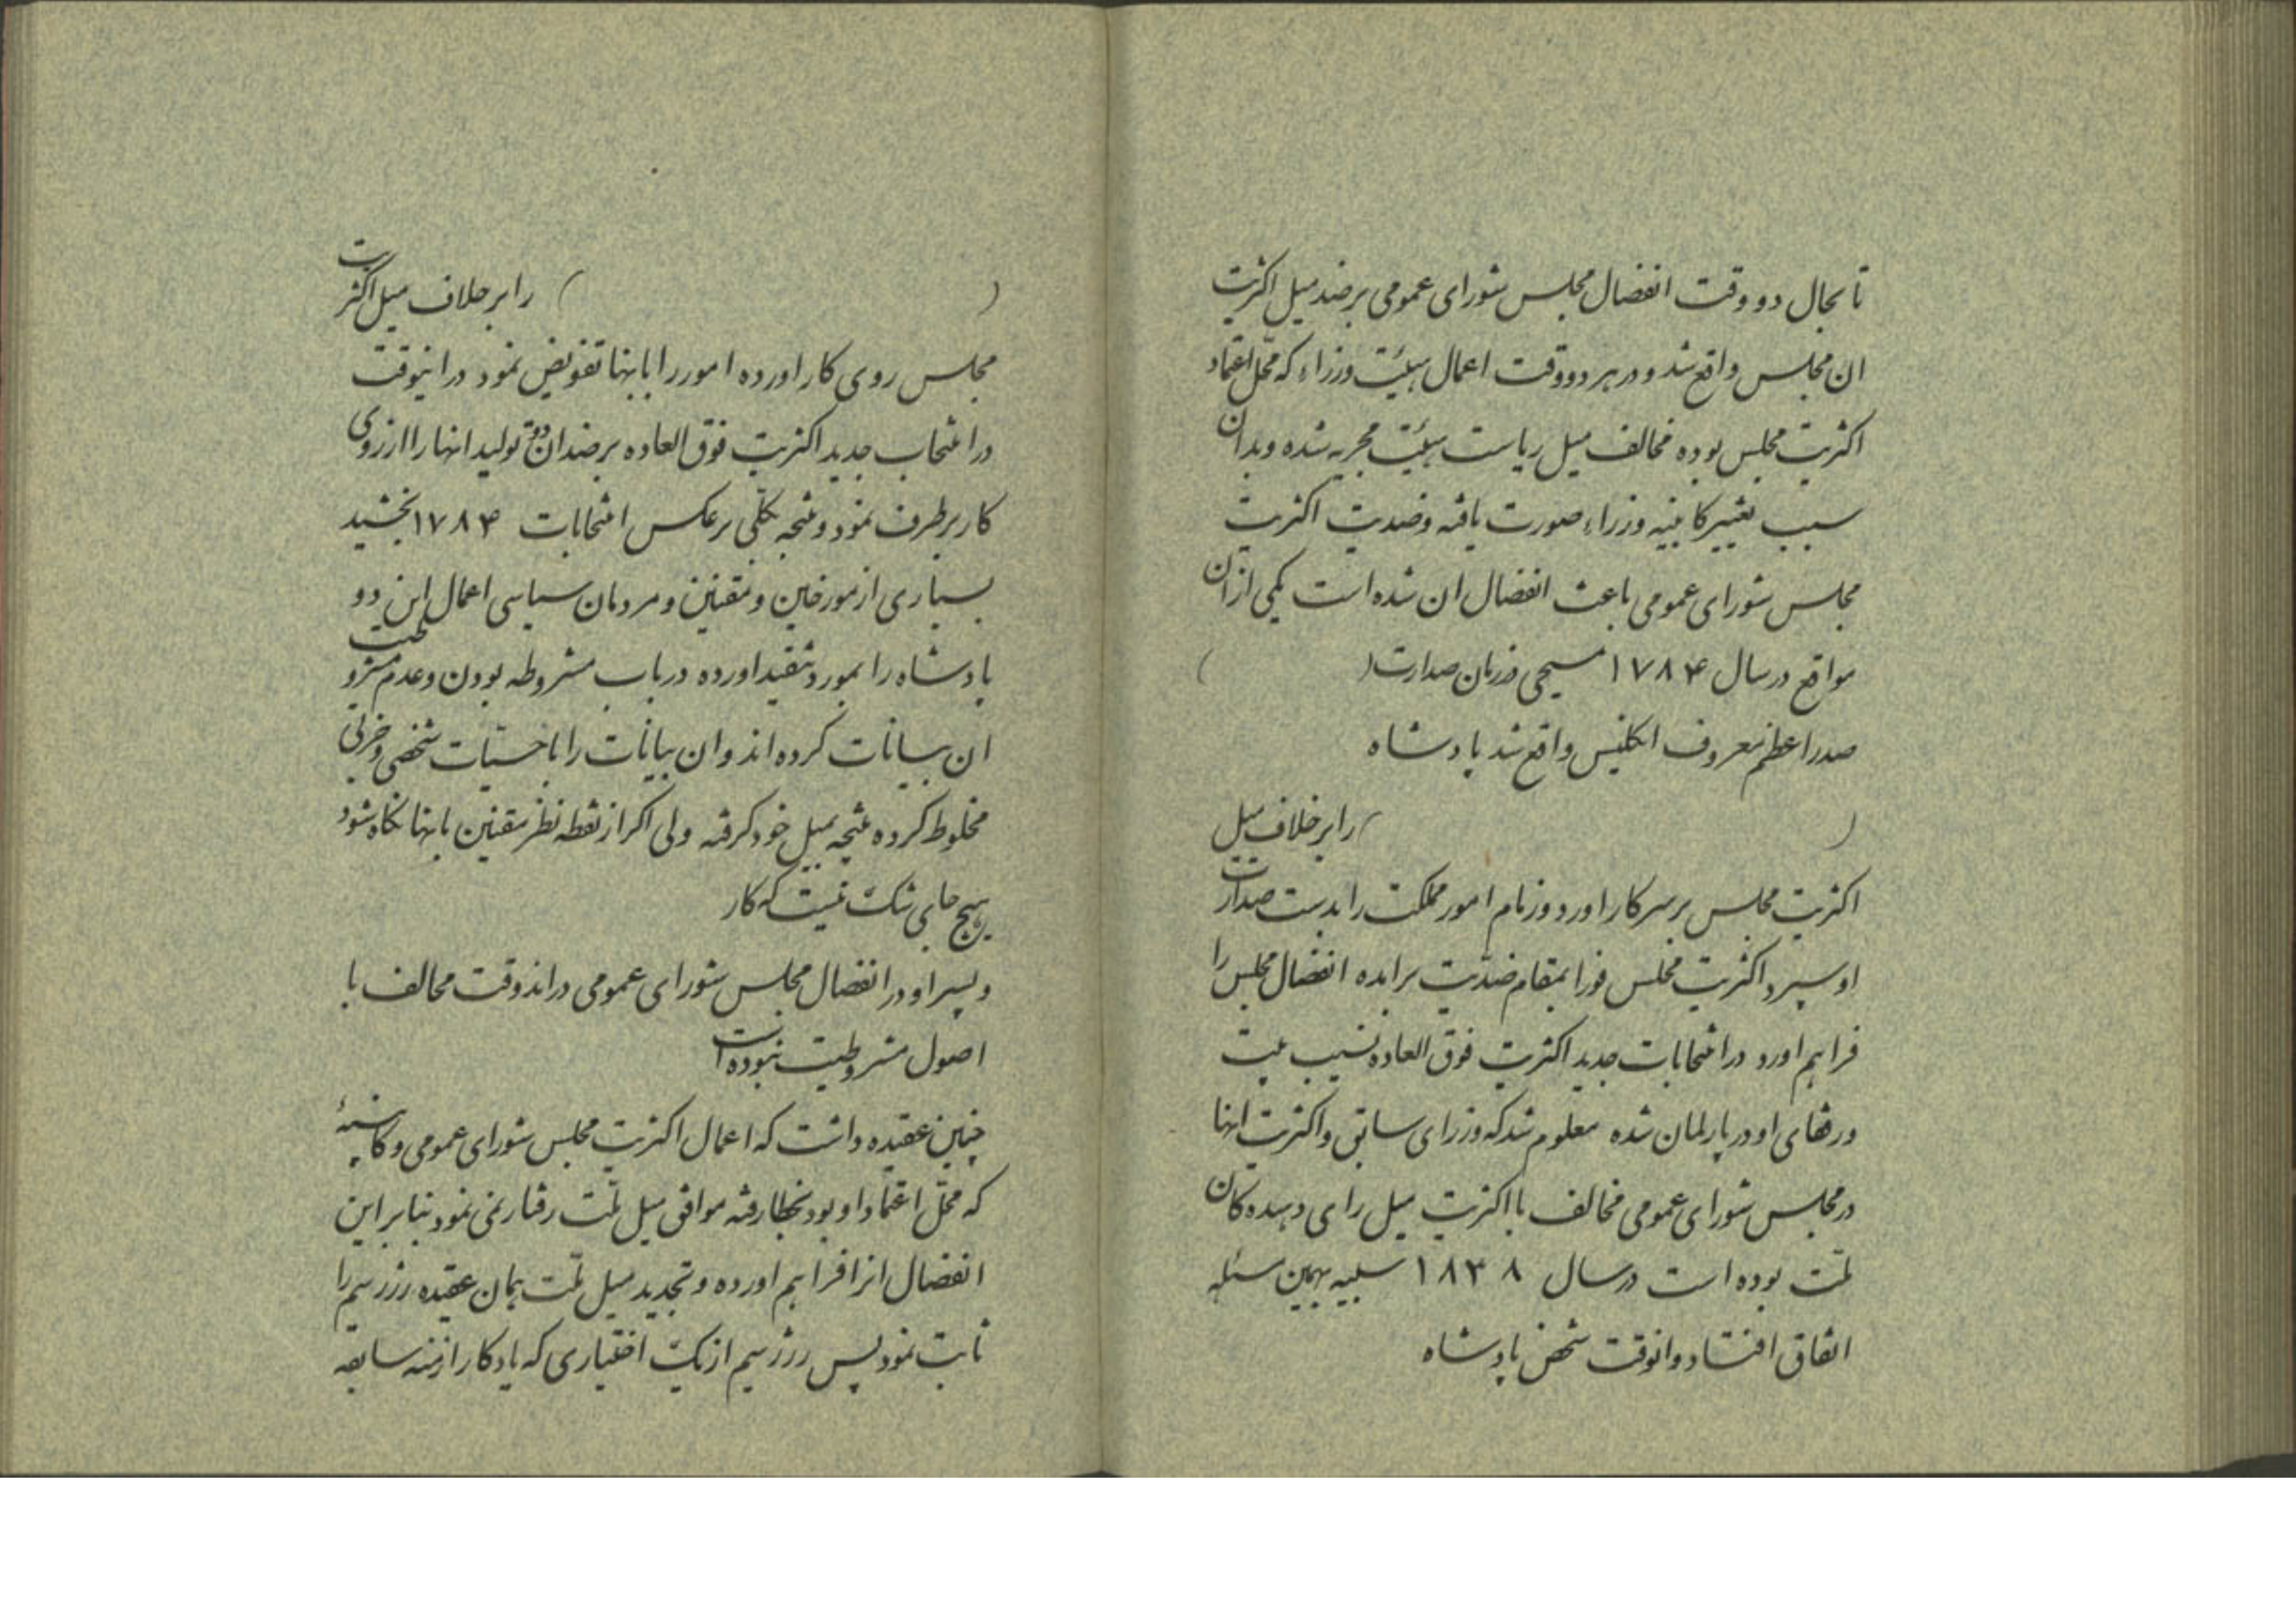 تابحال دو وقت انفضال مجلس شورای عمومی بر ضد میل اکثریت
ان مجلس واقع شد و در هر دو وقت اعمال هیئت وزراء که محل اعتماد
اکثریت مجلس بوده مخالف میل ریاست هیئت مجریه شده و بدان
سبب تغییر کابینه وزراء صورت یافته و ضدیت اکثریت
مجلس شورای عمومی باعث انفضال ان شده است یکی از ان
مواقع در سال ۱۷۸۴ مسیحی در زمان صدارت ( )
صدر اعظم معروف انکلیس واقع شد پادشاه
( ) را بر خلاف میل
اکثریت مجلس بر سر کار اورد و زمام امور مملکت را بدست صدارت
او سپرد اکثریت مجلس فورا بمقام ضدیت برامده انفضال مجلس را
فراهم اورد در انتخابات جدید اکثریت فوق العاده نسیب پیت
و رفقای او در پارلمان شده معلوم شد که وزرای سابق و اکثریت انها
در مجلس شورای عمومی مخالف با اکثریت میل رای دهنده کان
ملت بوده است در سال ۱۸۳۸ همین مسئله
اتفاق افتاد و انوقت شخص پادشاه
( ) را بر خلاف میل اکثریت
مجلس روی کار اورده امور را بانها تفویض نمود در اینوقت
در انتخاب جدید اکثریت فوق العاده بر ضد ان دو تولید انها را از روی
کار بر طرف نمود و نتیجه بکلی بر عکس انتخابات ۱۷۸۴ بخشید
بسیاری از مورخین و مقنین و مردمان سیاسی اعمال این دو
پادشاه را بمورد تنقید اورده در باب مشروطه بودن و عدم مشروطیت
ان بیانات کرده اند و ان بیانات را با حسیات شخصی و حزبی
مخلوط کرده نتیجه بمیل خود کرفته ولی اکر از نقطه نظر مقنین بانها نکاه شود
هیچ جای شک نیست که کار
و پسر او در انفضال مجلس شورای عمومی در اندو وقت مخالف با
اصول مشروطیت نبوده است
چنین عقیده داشت که اعمال اکثریت مجلس شورای عمومی و کابینهٔ
که محل اعتماد او بود بخطا رفته موافق میل ملت رفتار نمی نمود بنابراین
انفضال انرا فراهم اورده و تجدید میل ملت همان عقیده ژرژ سیم را
ثابت نمود پس ژرژ سیم از یک اختیاری که یادکار ازمنه سابقه